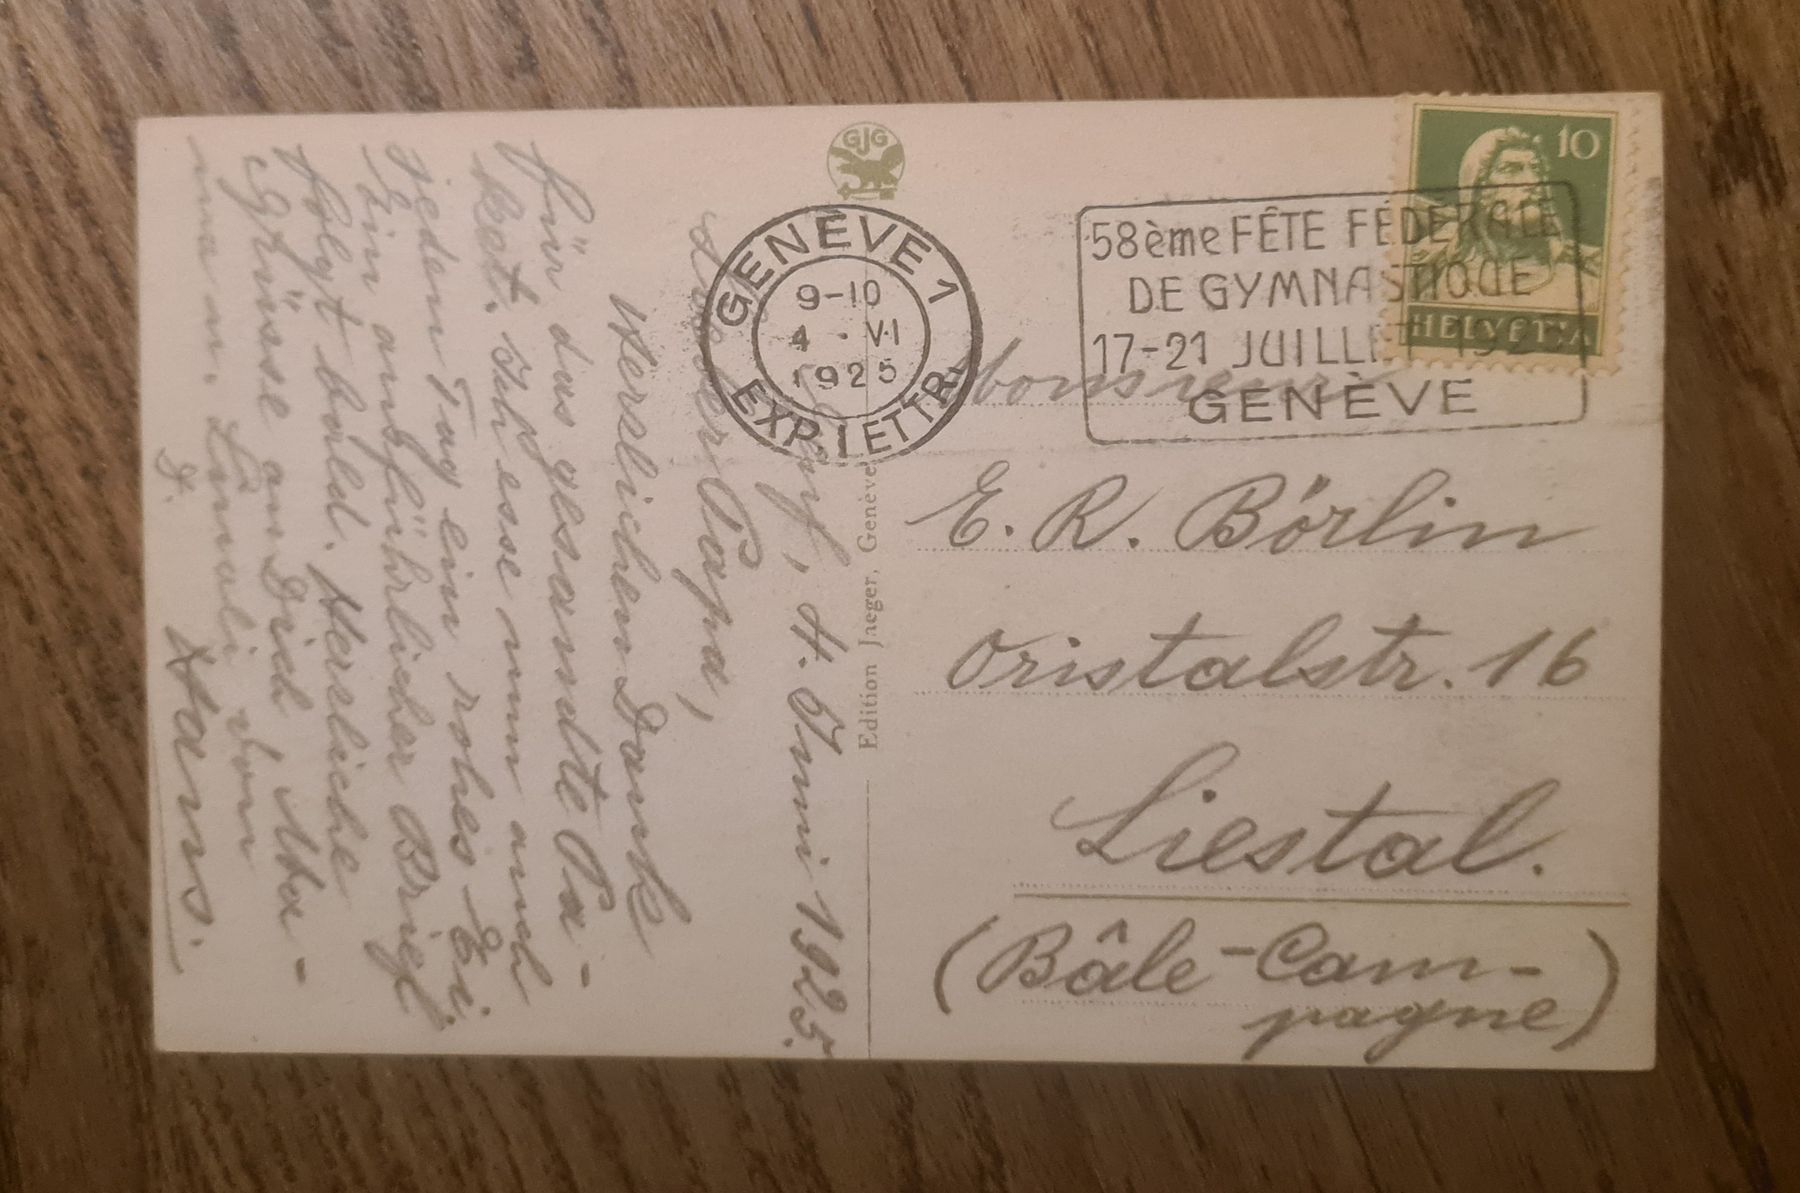 Genf, 4. Juni 1925.
Lieber Papa,
Herzlichen Dank
für das gesamte Pa-
ket. Ich esse nun auch
jeden Tag ein rohes Ei.
Ein ausführlicher Brief
folgt bald. Herzliche
Grüsse an Dich, Ma-
ma u. vom
Hans.
GJG
Edition Jaeger, Genève
GENÈVE 1
9-10
4 · VI
1925
EXP. LETTR.
58ème FÊTE FÉDÉRALE
DE GYMNASTIQUE
17-21 JUILLET 1925
GENÈVE
10
HELVETIA
Monsieur
E. R. Börlin
Oristalstr. 16
Liestal.
(Bâle-Cam-
pagne)